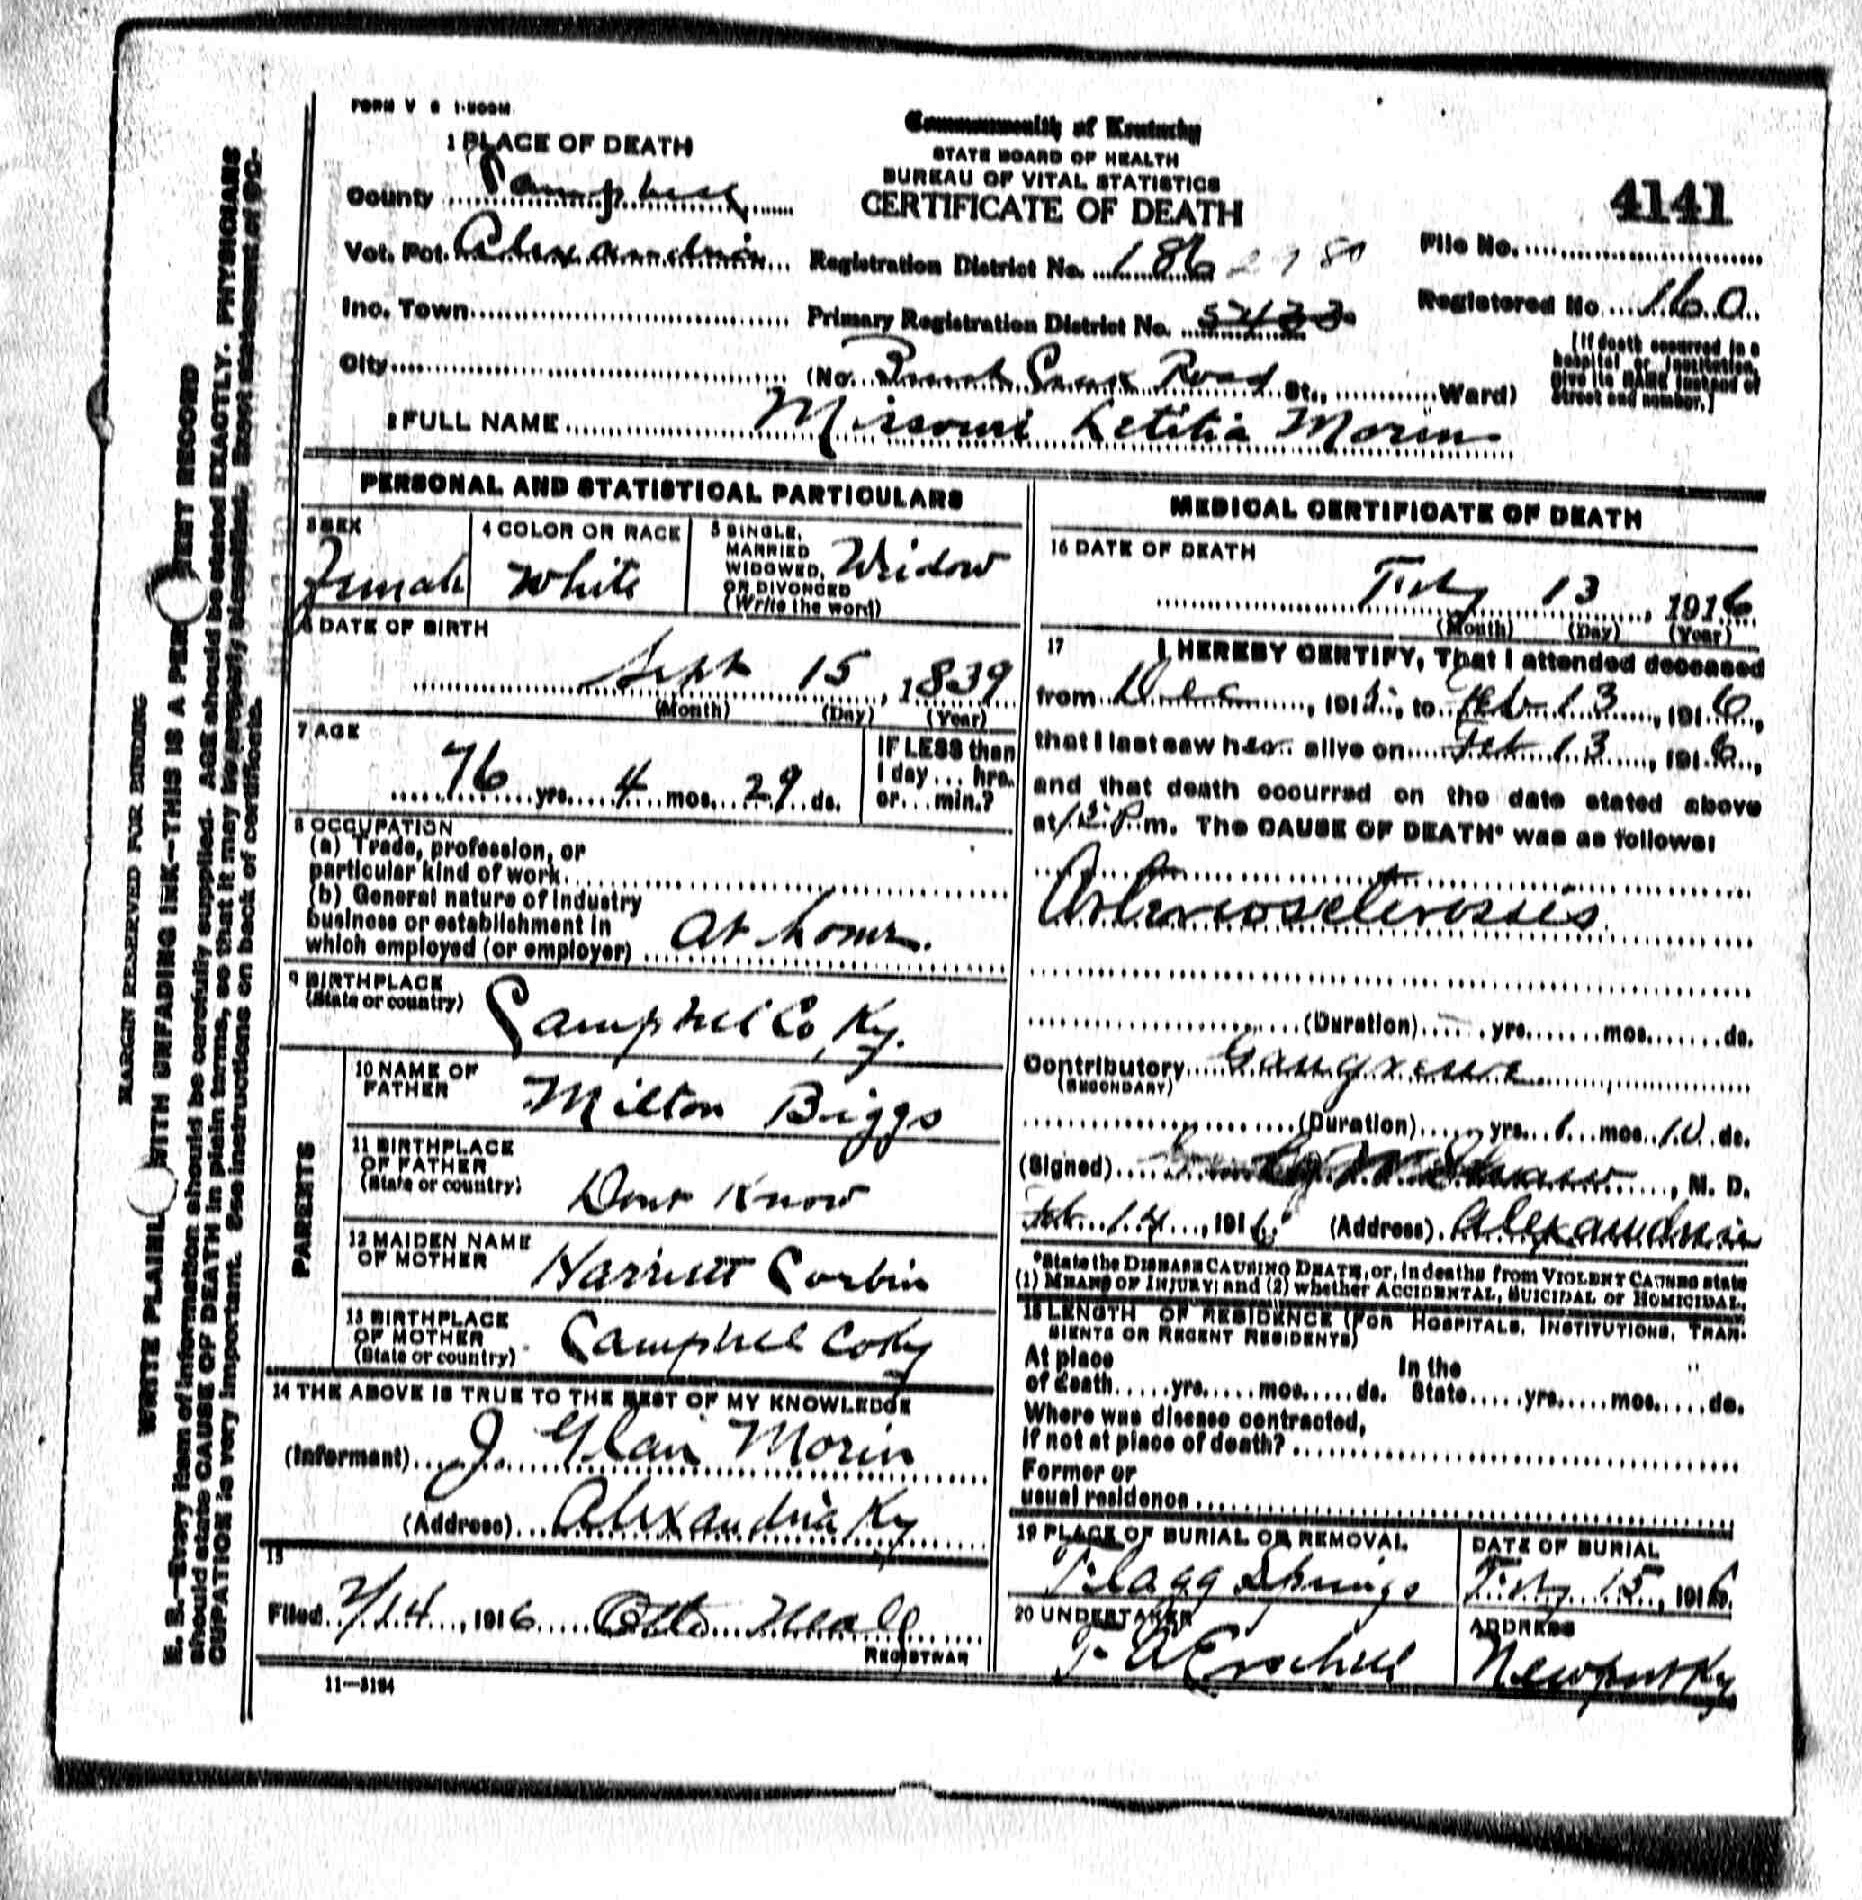 FORM V S 1-500M
Commonwealth of Kentucky
STATE BOARD OF HEALTH
BUREAU OF VITAL STATISTICS
CERTIFICATE OF DEATH
4141
1 PLACE OF DEATH
County Campbell
Vot. Pct. Alexandria Registration District No. 186 File No.
Inc. Town Primary Registration District No. 5433 Registered No 160
City (No. Road St., Ward)
(If death occurred in a
hospital or institution,
give its NAME instead of
street and number.)
2 FULL NAME Missouri Letitia Morin
PERSONAL AND STATISTICAL PARTICULARS
3 SEX Female
4 COLOR OR RACE White
5 SINGLE,
MARRIED
WIDOWED,
OR DIVORCED
(Write the word)
Widow
6 DATE OF BIRTH
Sept 15, 1839
(Month) (Day) (Year)
7 AGE
76 yrs. 4 mos. 29 ds.
IF LESS than
1 day... hrs.
or... min.?
8 OCCUPATION
(a) Trade, profession, or
particular kind of work
(b) General nature of industry
business or establishment in
which employed (or employer) At home.
9 BIRTHPLACE
(State or country) Campbell Co, Ky.
PARENTS
10 NAME OF
FATHER Milton Biggs
11 BIRTHPLACE
OF FATHER
(State or country) Dont Know
12 MAIDEN NAME
OF MOTHER Harriett Corbin
13 BIRTHPLACE
OF MOTHER
(State or country) Campbell Co Ky
14 THE ABOVE IS TRUE TO THE BEST OF MY KNOWLEDGE
(Informant) J. Morin
(Address) Alexandria Ky
15
Filed 2/14, 1916 Otto
REGISTRAR
11—3184
MEDICAL CERTIFICATE OF DEATH
16 DATE OF DEATH
Feby 13, 1916
(Month) (Day) (Year)
17 I HEREBY CERTIFY, That I attended deceased
from Dec, 1915, to Feb 13, 1916,
that I last saw her alive on Feb 13, 1916,
and that death occurred on the date stated above
at 12 P.m. The CAUSE OF DEATH* was as follows:
Arteriosclerosis
(Duration) yrs. mos. ds.
Contributory Gangrene
(SECONDARY)
(Duration) yrs. 1 mos. 10 ds.
(Signed) Shaw, M. D.
Feb 14, 1916 (Address) Alexandria
*State the DISEASE CAUSING DEATH, or, in deaths from VIOLENT CAUSES state
(1) MEANS OF INJURY; and (2) whether ACCIDENTAL, SUICIDAL or HOMICIDAL.
18 LENGTH OF RESIDENCE (FOR HOSPITALS, INSTITUTIONS, TRAN-
SIENTS OR RECENT RESIDENTS)
At place In the
of death yrs. mos. ds. State yrs. mos. ds.
Where was disease contracted,
if not at place of death?
Former or
usual residence
19 PLACE OF BURIAL OR REMOVAL
Flagg Springs
DATE OF BURIAL
Feby 15, 1916
20 UNDERTAKER
ADDRESS
Newport Ky
MARGIN RESERVED FOR BINDING
WRITE PLAINLY WITH UNFADING INK—THIS IS A PERMANENT RECORD
N. B.—Every item of information should be carefully supplied. AGE should be stated EXACTLY. PHYSICIANS
should state CAUSE OF DEATH in plain terms, so that it may be properly classified. Exact statement of OC-
CUPATION is very important. See instructions on back of certificate.